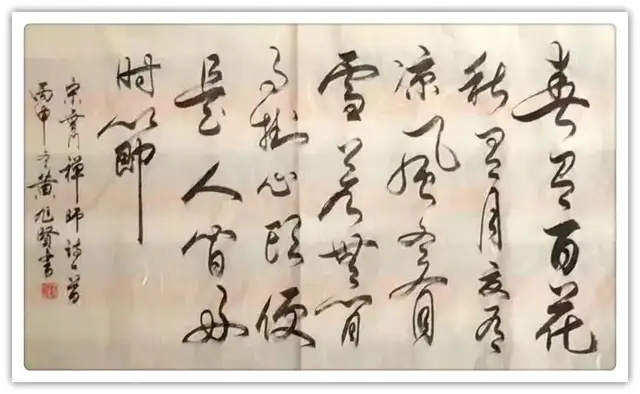 春有百花
秋有月夏有
凉风冬有
雪若無闲
事掛心頭便
是人間好
时節
宋无门禅师诗一首
丙申黄旭贤书